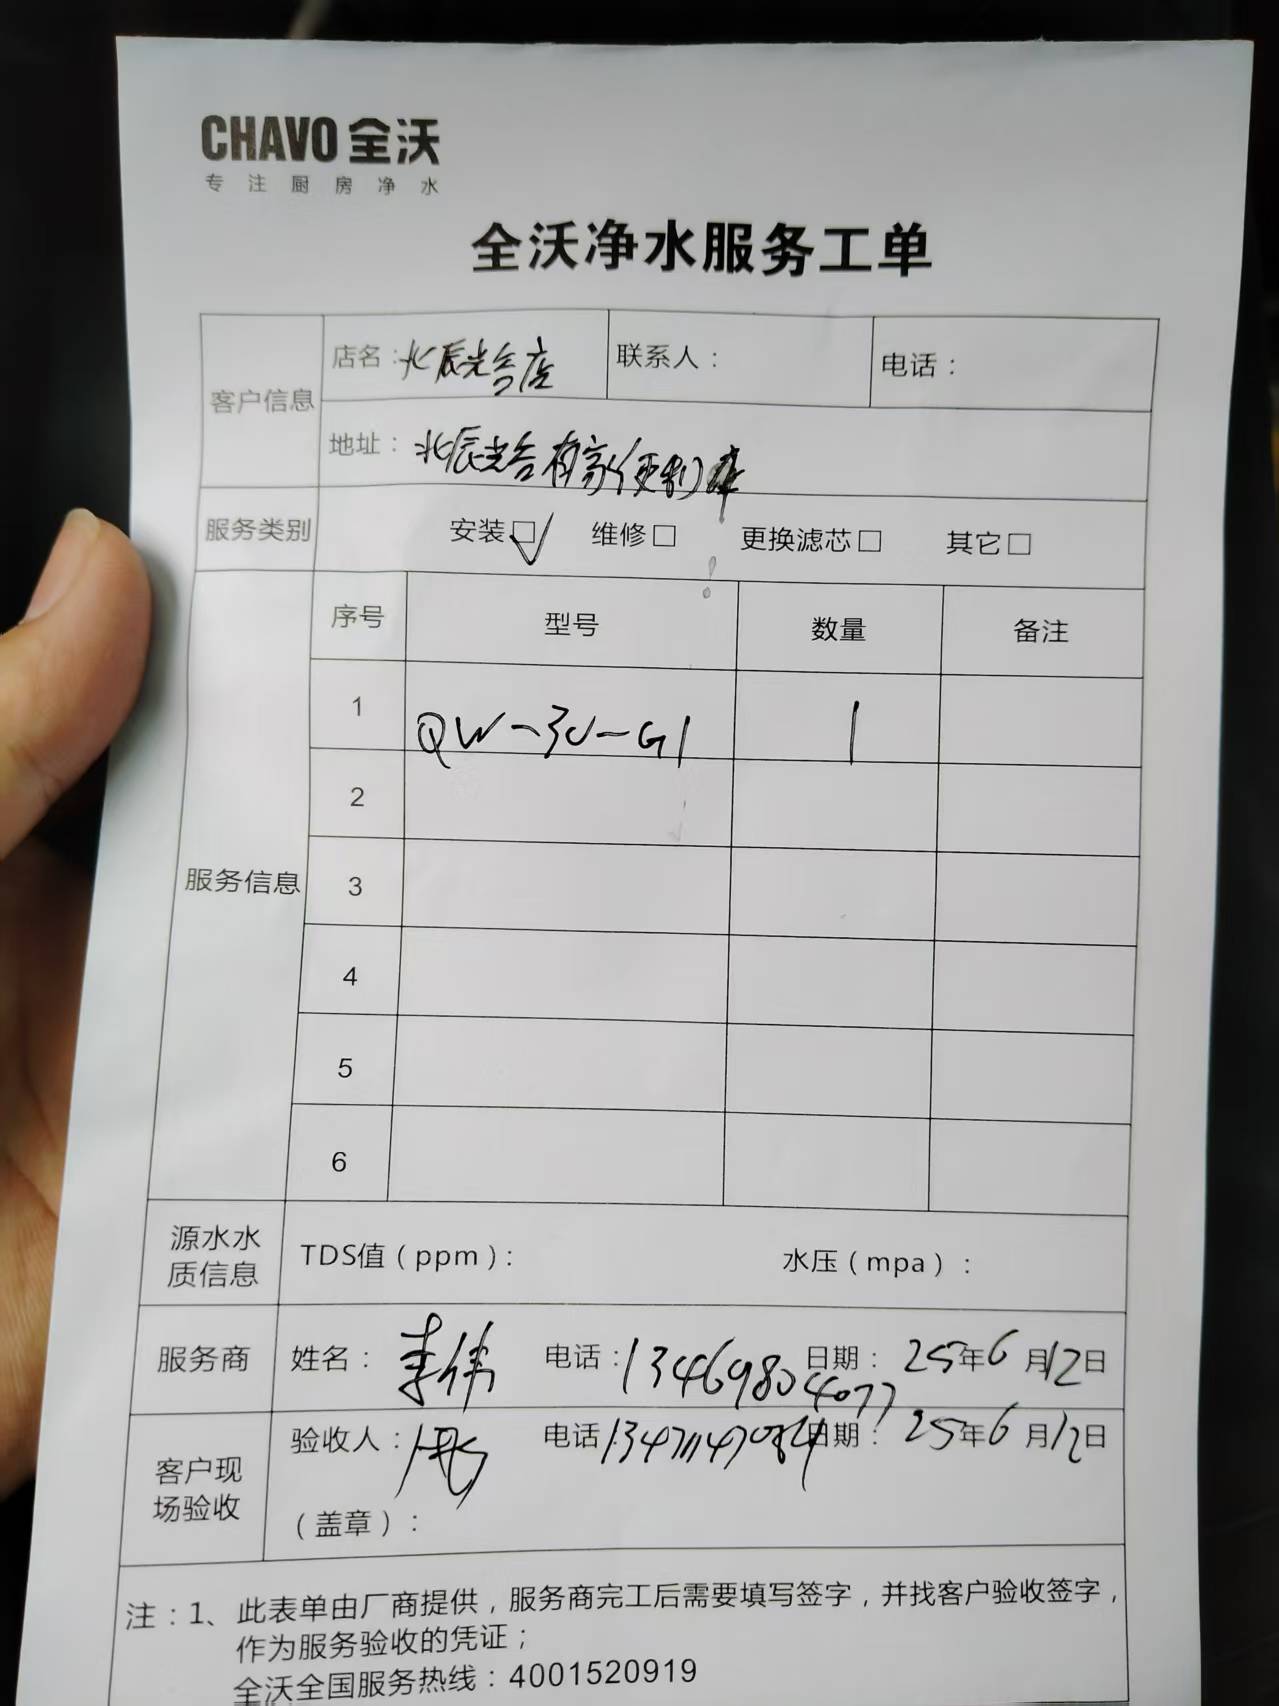 CHAVO 全沃
专注厨房净水
全沃净水服务工单
客户信息
店名：北辰光合店
联系人：
电话：
地址：北辰光合有家便利
服务类别
安装☑ 维修□ 更换滤芯□ 其它□
服务信息
序号 型号 数量 备注
1 QW-30-G1 1
2
3
4
5
6
源水水质信息
TDS值（ppm）：
水压（mpa）：
服务商
姓名：李伟 电话：13469804077 日期：25年6月12日
客户现场验收
验收人： 电话 日期：25年6月12日
（盖章）：
注：1、此表单由厂商提供，服务商完工后需要填写签字，并找客户验收签字，
作为服务验收的凭证；
全沃全国服务热线：4001520919